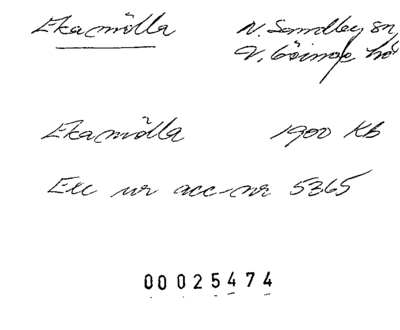 Ekamölla N. Sandby sn,
V. Göinge hd
Ekamölla 1900 Kb
Exc ur acc-nr 5365
00 025474